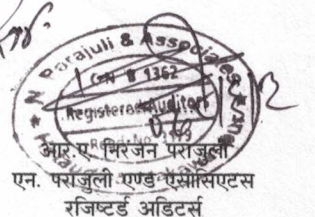 N. Parajuli & Associates
G.N. B 1362
Registered Auditors
आर.ए. निरंजन पराजुली
एन. पराजुली एण्ड एसोसिएटस
रजिष्टर्ड अडिटर्स